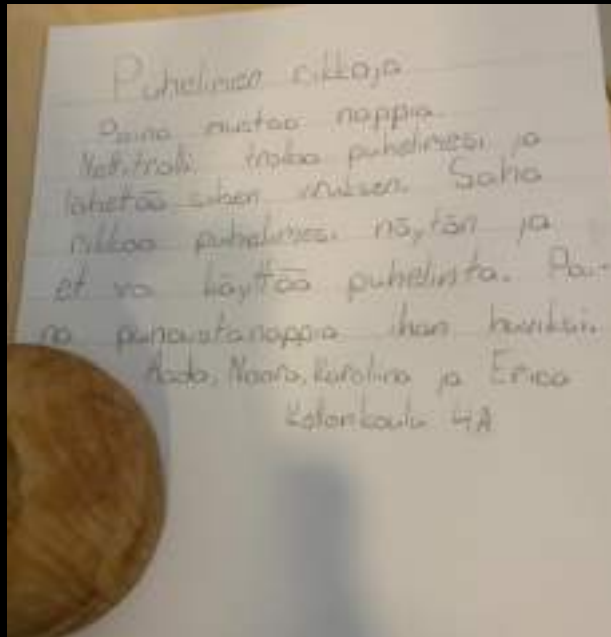 Puhelimen rikkoja
Paina mustaa nappia.
Nettitrolli trollaa puhelimesi ja
lähettää siihen viruksen. Se
rikkoo puhelimesi näytön ja
et voi käyttää puhelinta. Pai-
na punaista nappia ihan huviksi.
Aada, Noora, Karolina ja Erica
4A